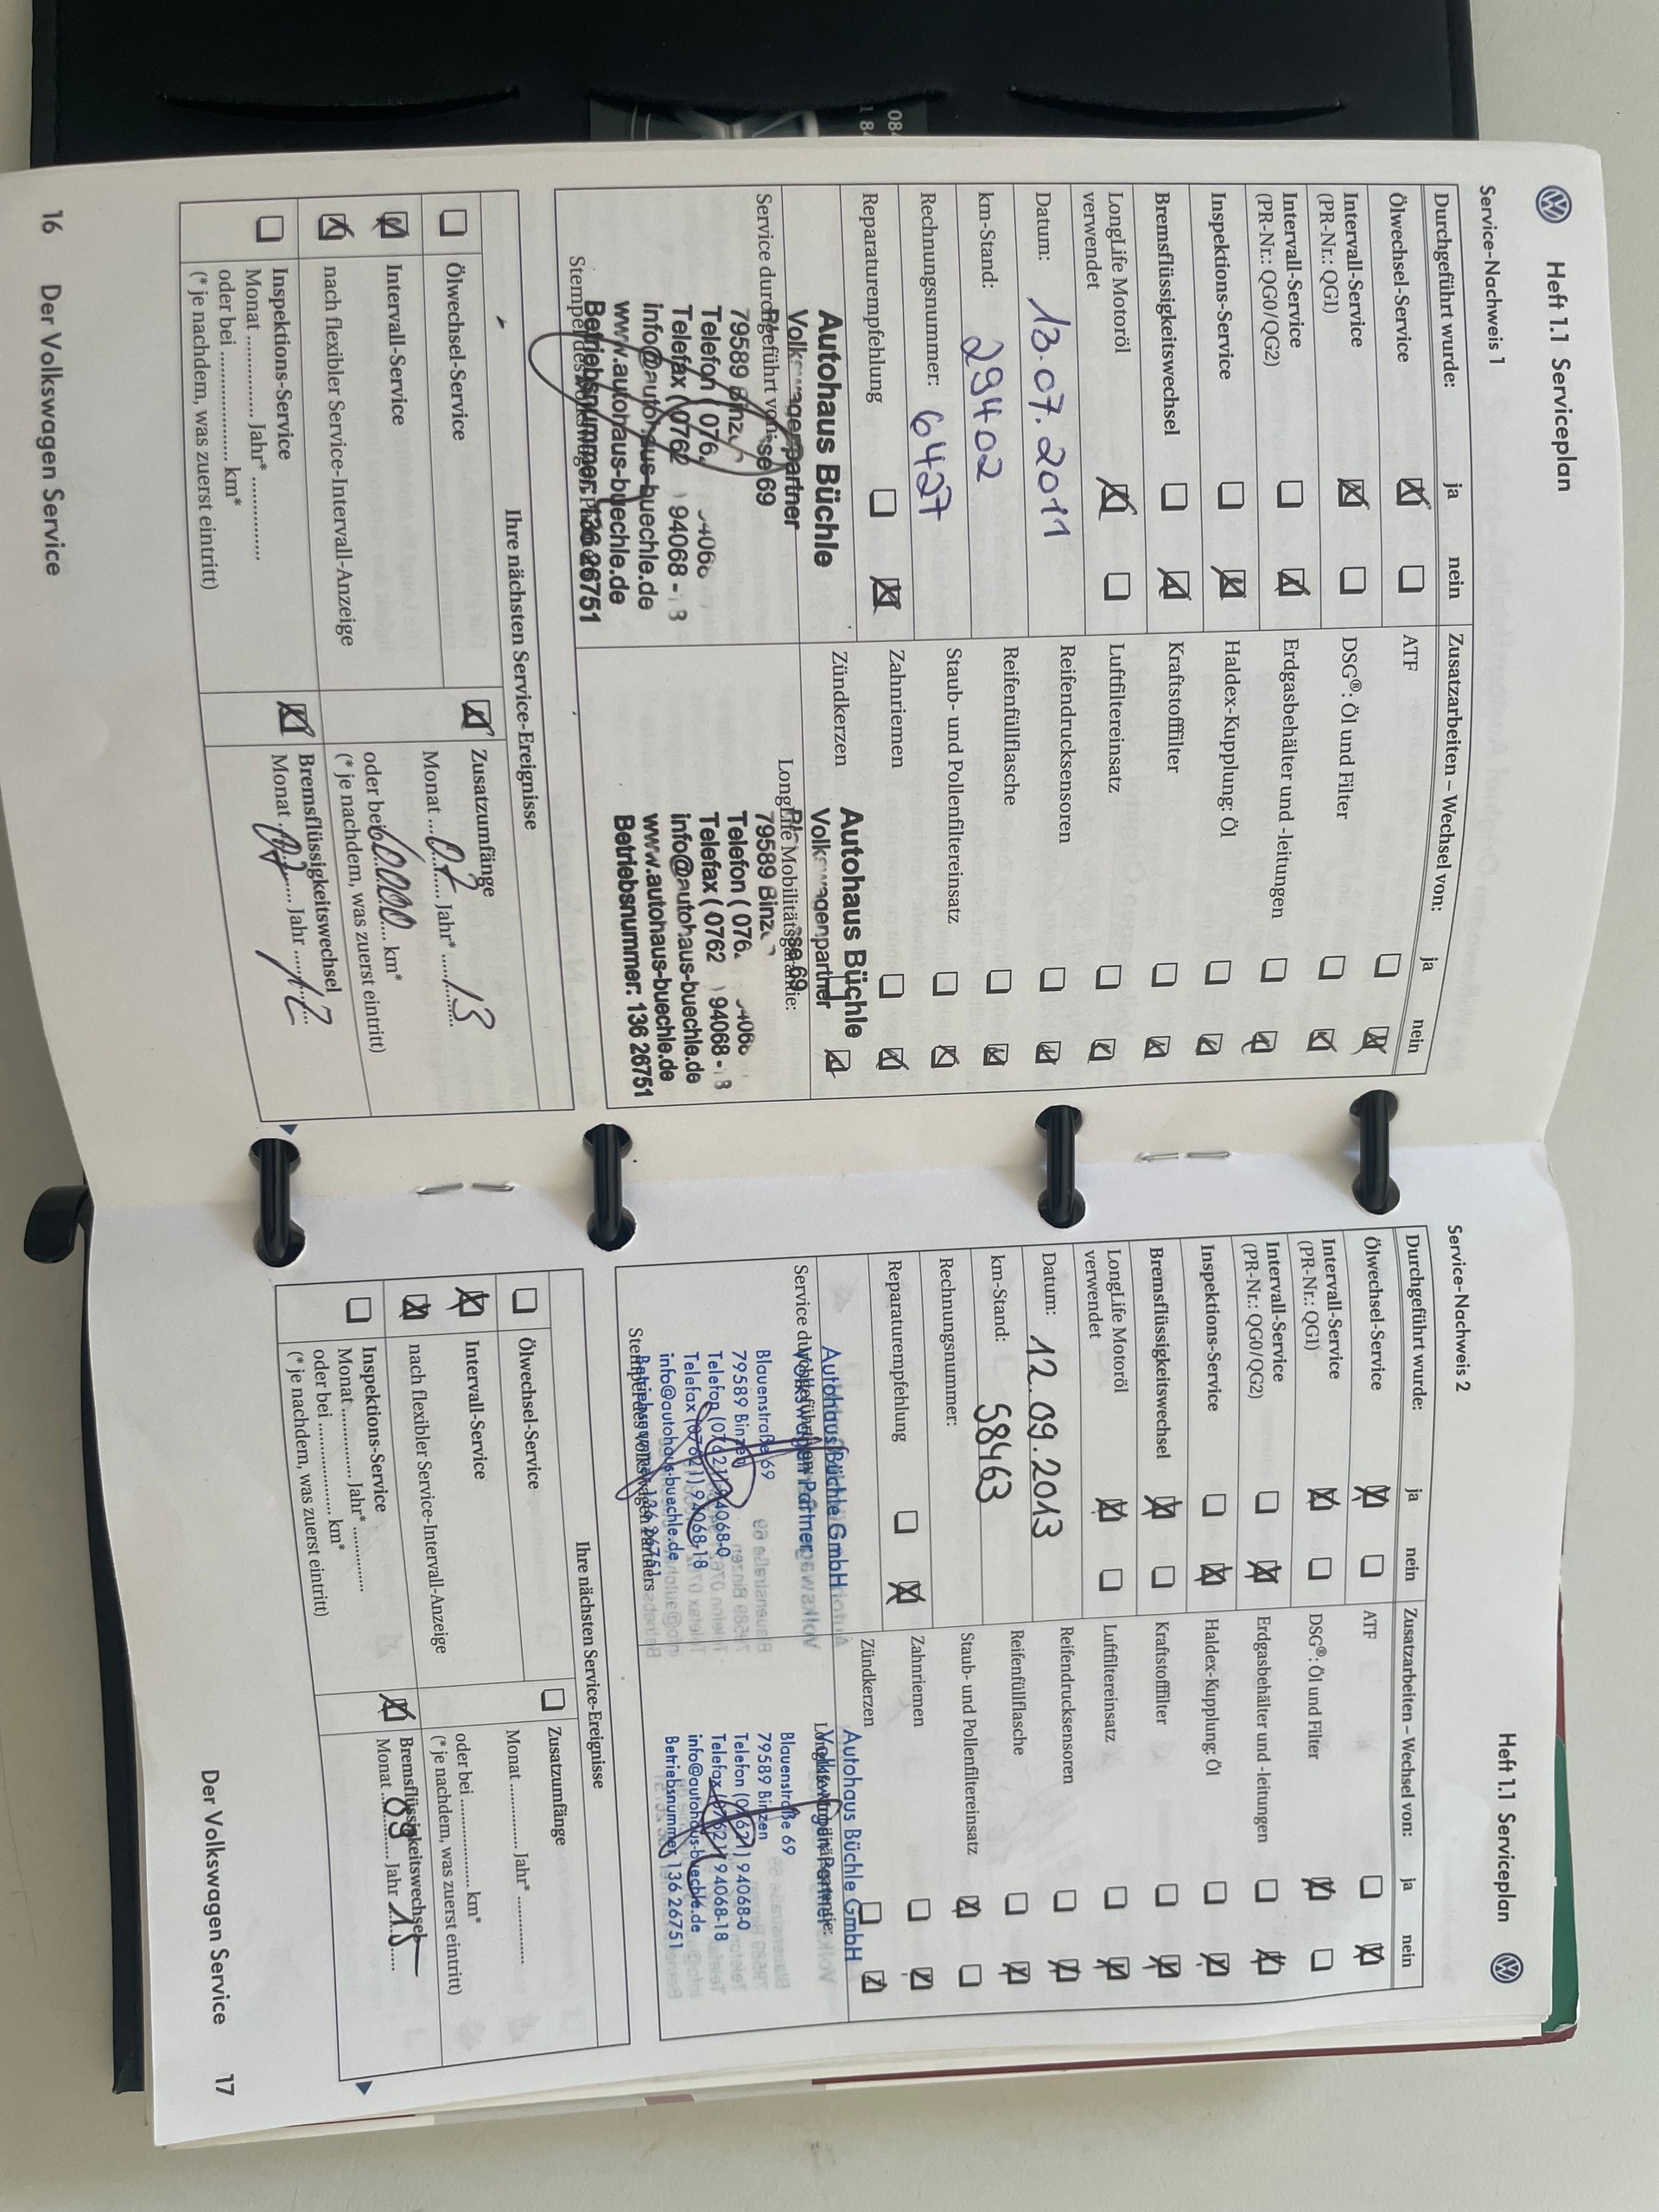 Heft 1.1 Serviceplan
Service-Nachweis 1
Durchgeführt wurde: ja nein
Ölwechsel-Service
Intervall-Service
(PR-Nr.: QG1)
Intervall-Service
(PR-Nr.: QG0/QG2)
Inspektions-Service
Bremsflüssigkeitswechsel
LongLife Motoröl
verwendet
Datum: 13.07.2011
km-Stand: 29402
Rechnungsnummer: 6427
Reparaturempfehlung
Zusatzarbeiten – Wechsel von: ja nein
ATF
DSG®: Öl und Filter
Erdgasbehälter und -leitungen
Haldex-Kupplung: Öl
Kraftstofffilter
Luftfiltereinsatz
Reifendrucksensoren
Reifenfüllflasche
Staub- und Pollenfiltereinsatz
Zahnriemen
Zündkerzen
Service durchgeführt von:
Autohaus Büchle
Volkswagenpartner
69
79589 Binz
Telefon ( 076
Telefax ( 0762 ) 94068 - 18
info@autohaus-buechle.de
www.autohaus-buechle.de
Betriebsnummer: 136 26751
Stempel des Volkswagen Partners
LongLife Mobilitätsgarantie:
Autohaus Büchle
Volkswagenpartner
69
79589 Binz
Telefon ( 076
Telefax ( 0762 ) 94068 - 18
info@autohaus-buechle.de
www.autohaus-buechle.de
Betriebsnummer: 136 26751
Ihre nächsten Service-Ereignisse
Ölwechsel-Service
Intervall-Service
nach flexibler Service-Intervall-Anzeige
Inspektions-Service
Monat ............... Jahr* ...............
oder bei ............... km*
(* je nachdem, was zuerst eintritt)
Zusatzumfänge
Monat ...07... Jahr* ...13...
oder bei 60000 km*
(* je nachdem, was zuerst eintritt)
Bremsflüssigkeitswechsel
Monat .07... Jahr ...12...
16 Der Volkswagen Service
Heft 1.1 Serviceplan
Service-Nachweis 2
Durchgeführt wurde: ja nein
Ölwechsel-Service
Intervall-Service
(PR-Nr.: QG1)
Intervall-Service
(PR-Nr.: QG0/QG2)
Inspektions-Service
Bremsflüssigkeitswechsel
LongLife Motoröl
verwendet
Datum: 12.09.2013
km-Stand: 58463
Rechnungsnummer:
Reparaturempfehlung
Zusatzarbeiten – Wechsel von: ja nein
ATF
DSG®: Öl und Filter
Erdgasbehälter und -leitungen
Haldex-Kupplung: Öl
Kraftstofffilter
Luftfiltereinsatz
Reifendrucksensoren
Reifenfüllflasche
Staub- und Pollenfiltereinsatz
Zahnriemen
Zündkerzen
Service durchgeführt von:
Autohaus Büchle GmbH
Volkswagen Partner
Blauenstraße 69
79589 Binzen
Telefon (07621) 94068-0
Telefax (07621) 94068-18
info@autohaus-buechle.de
Betriebsnummer 136 26751
Stempel des Volkswagen Partners
Autohaus Büchle GmbH
Volkswagen Partner
Blauenstraße 69
79589 Binzen
Telefon (07621) 94068-0
Telefax (07621) 94068-18
info@autohaus-buechle.de
Betriebsnummer 136 26751
Ihre nächsten Service-Ereignisse
Ölwechsel-Service
Intervall-Service
nach flexibler Service-Intervall-Anzeige
Inspektions-Service
Monat ............... Jahr* ...............
oder bei ............... km*
(* je nachdem, was zuerst eintritt)
Zusatzumfänge
Monat ............... Jahr* ...............
oder bei ............... km*
(* je nachdem, was zuerst eintritt)
Bremsflüssigkeitswechsel
Monat ..09... Jahr ..15...
Der Volkswagen Service 17